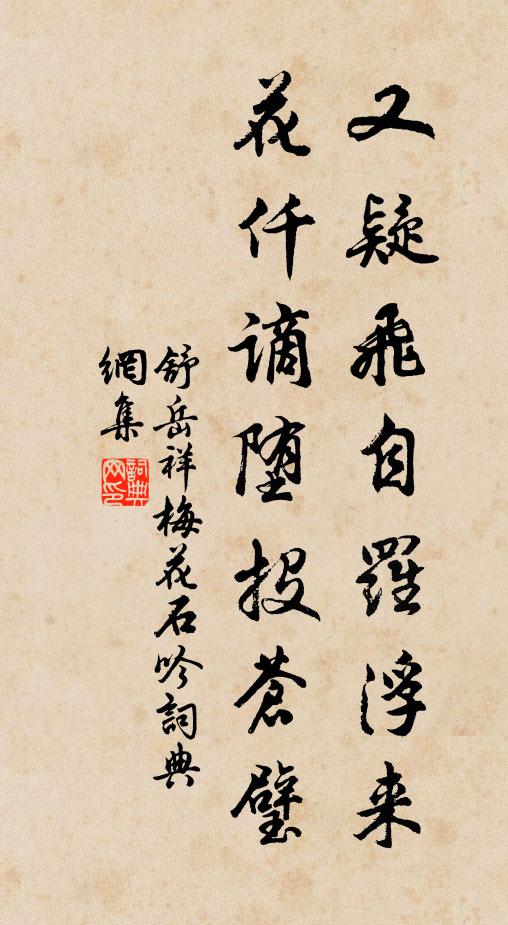 又疑飛自羅浮来
花仟謫堕投蒼璧
舒岳祥梅花石吟詞典
網集
詞典
网印